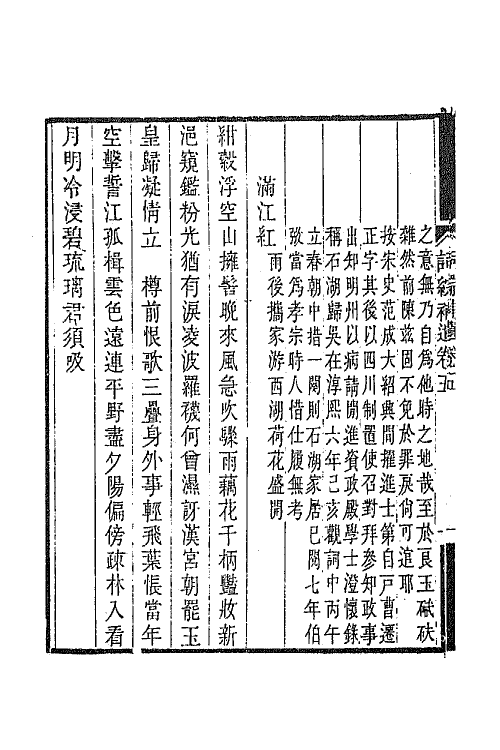 詞綜補遺卷五
之意無乃自為他時之地哉至於良玉碔砆
雜然前陳茲固不免於罪戾尙可逭耶
按宋史范成大紹興間擢進士第自戸曹遷
正字其後以四川制置使召對拜參知政事
出知明州以病請閒進資政殿學士澄懷錄
稱石湖歸吳在淳熙六年己亥觀詞中丙午
立春朝中措一闋則石湖家居已閱七年伯
攷當為孝宗時人惜仕履無考
滿江紅雨後攜家游西湖荷花盛開
紺縠浮空山擁髻晚來風急吹驟雨藕花千柄豔妝新
浥窺鑑粉光猶有淚凌波羅襪何曾濕訝漢宮朝罷玉
皇歸凝情立　樽前恨歌三疊身外事輕飛葉悵當年
空擊誓江孤楫雲色遠連平野盡夕陽偏傍疎林入看
月明冷浸碧琉璃君須吸